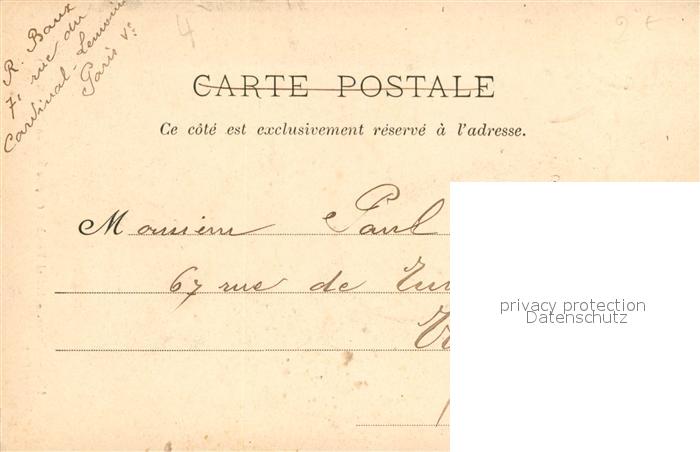 R. Baux
71 rue du
Cardinal-Lemoine
Paris Ve
4
2
CARTE POSTALE
Ce côté est exclusivement réservé à l'adresse.
Monsieur Paul
67 rue de
privacy protection
Datenschutz